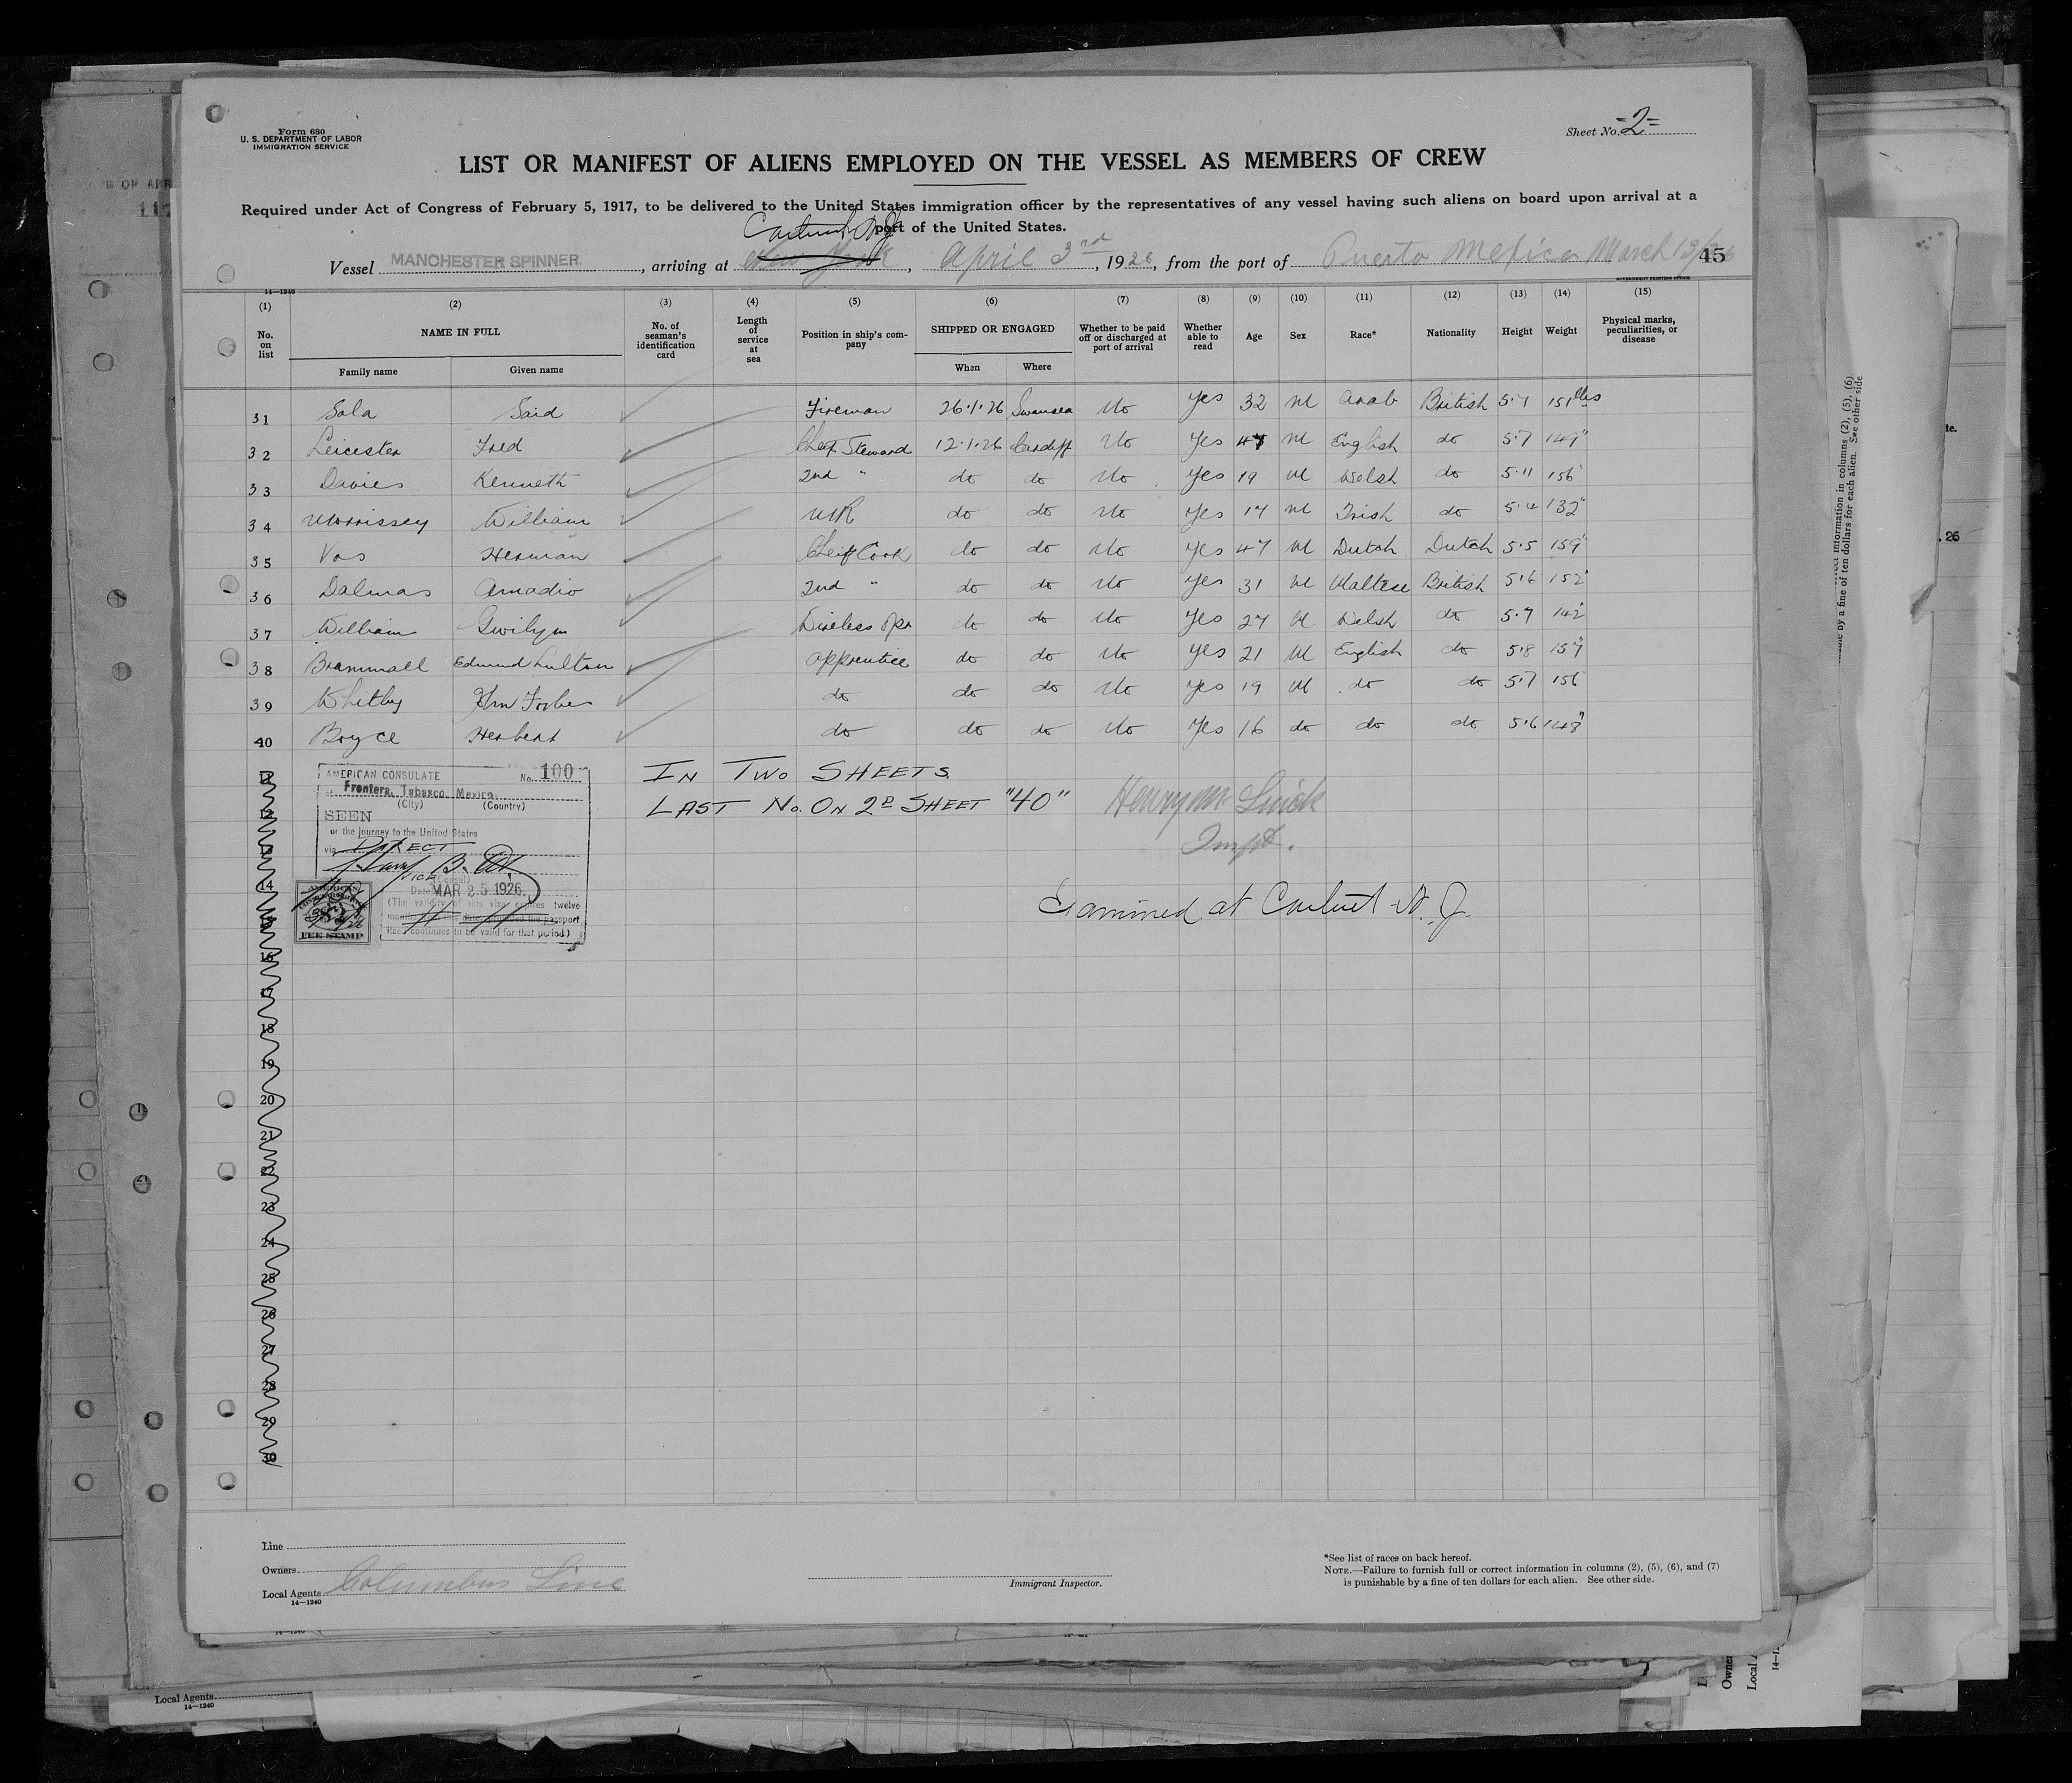 Form 680
U. S. DEPARTMENT OF LABOR
IMMIGRATION SERVICE
Sheet No. =2=
LIST OR MANIFEST OF ALIENS EMPLOYED ON THE VESSEL AS MEMBERS OF CREW
Required under Act of Congress of February 5, 1917, to be delivered to the United States immigration officer by the representatives of any vessel having such aliens on board upon arrival at a
port of the United States.
Carteret N.J.
Vessel MANCHESTER SPINNER, arriving at New York, April 3rd, 1926, from the port of Puerto Mexico March 13/26
45
14—1240
(1) (2) (3) (4) (5) (6) (7) (8) (9) (10) (11) (12) (13) (14) (15)
No. on list NAME IN FULL No. of seaman's identification card Length of service at sea Position in ship's company SHIPPED OR ENGAGED Whether to be paid off or discharged at port of arrival Whether able to read Age Sex Race* Nationality Height Weight Physical marks, peculiarities, or disease
Family name Given name When Where
31 Sala Said Fireman 26.1.26 Swansea No Yes 32 M Arab British 5.7 151 lbs
32 Leicester Fred Cheif Steward 12.1.26 Cardiff No Yes 47 M English do 5.7 149"
33 Davies Kenneth 2nd " do do No Yes 19 M Welsh do 5.11 156"
34 Morrissey William M/R do do No Yes 17 M Irish do 5.4 132"
35 Vos Herman Cheif Cook do do No Yes 47 M Dutch Dutch 5.5 159"
36 Dalmas Amadio 2nd " do do No Yes 31 M Maltese British 5.6 152"
37 William Gwilym Wireless Opr do do No Yes 27 M Welsh do 5.7 142"
38 Brammall Edmund Lulton Apprentice do do No Yes 21 M English do 5.8 157"
39 Whitby John Forbes do do do No Yes 19 M do do 5.7 156
40 Boyce Herbert do do do No Yes 16 do do do 5.6 148"
IN TWO SHEETS
LAST No. ON 2D SHEET "40"
Henry M.
Inspt.
Examined at Carteret N. J.
AMERICAN CONSULATE No. 100
at Frontera, Tabasco, Mexico.
(City) (Country)
SEEN
or the journey to the United States
via DIRECT
VICE (Consul)
Date MAR 25 1926.
(The validity of this visa expires twelve
months
continues to be valid for that period.)
AMERICAN
FEE STAMP
14
15
16
17
18
19
20
21
22
23
24
25
26
27
28
29
30
Line
Owners
Local Agents Columbus Line
14—1240
Immigrant Inspector.
*See list of races on back hereof.
NOTE.—Failure to furnish full or correct information in columns (2), (5), (6), and (7)
is punishable by a fine of ten dollars for each alien. See other side.
Local Agents
14—1240